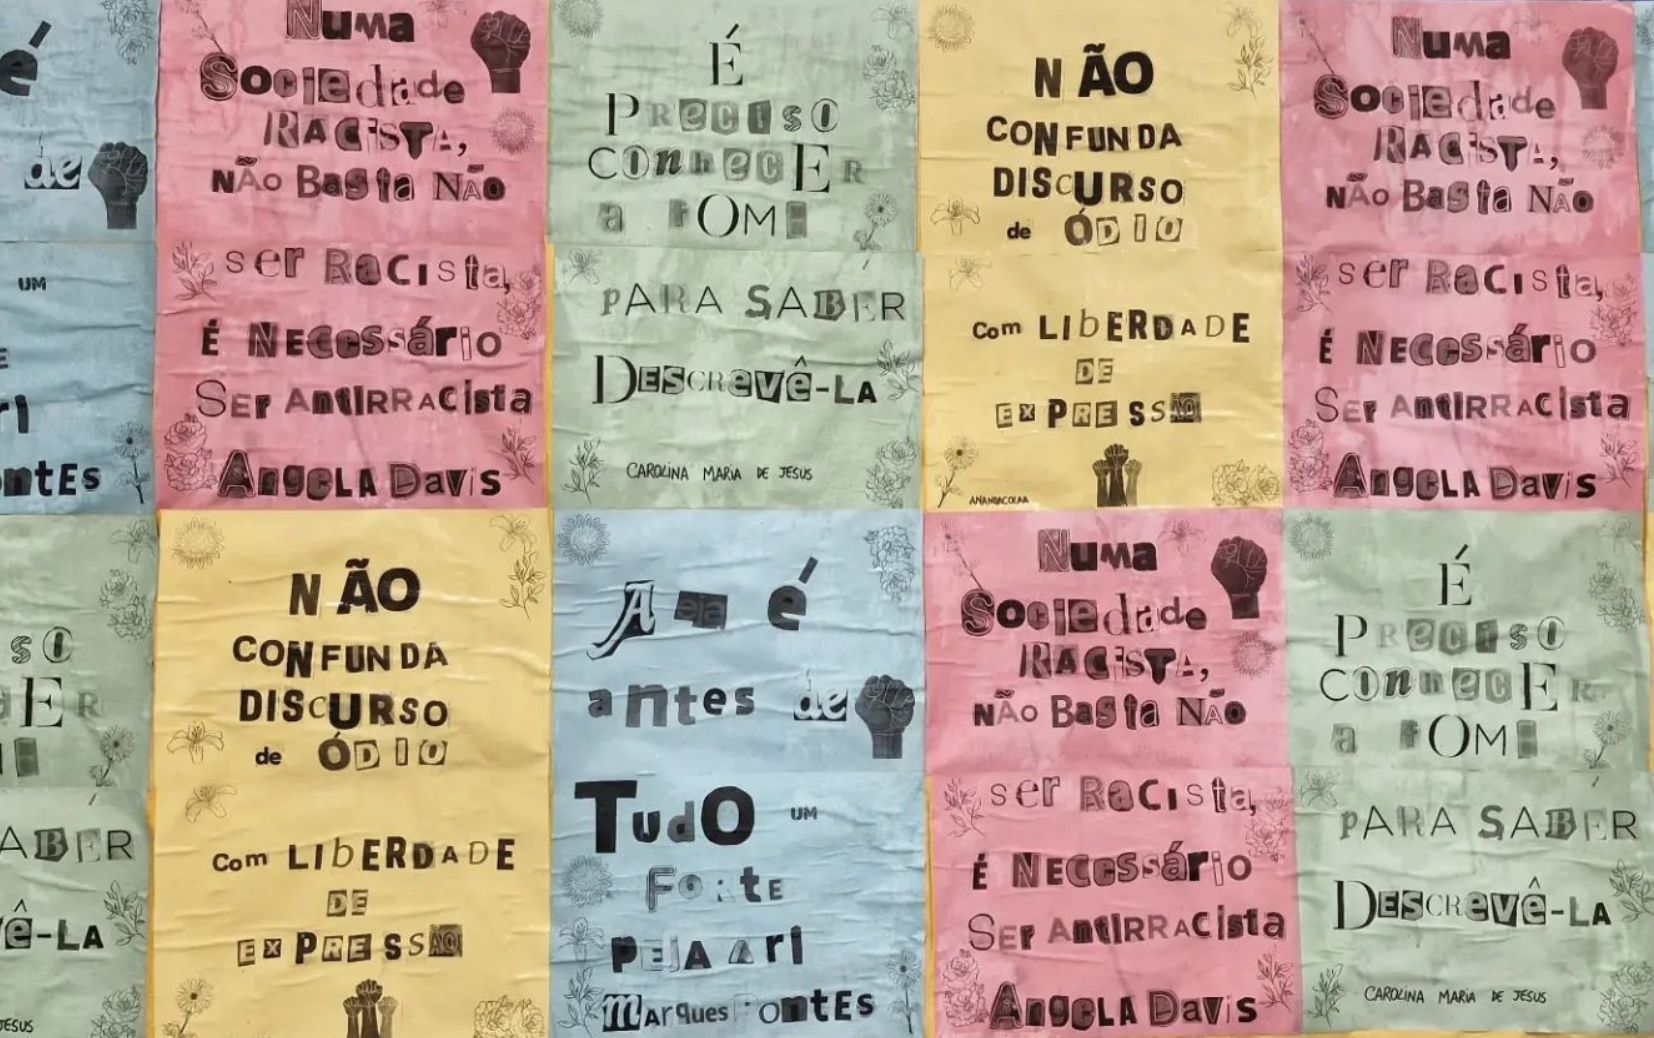 é
de
UM
E
ri
ntEs
Numa
Sociedade
RACISTA,
NÃO Basta NÃO
ser Racista,
É Necessário
Ser AntiRRACista
Angela Davis
É
Preciso
conhecER
a FOME
PARA SABER
DESCREVÊ-LA
CAROLINA MARIA DE JESUS
NÃO
CONFUNDA
DIScURSO
de ÓDIO
Com LIbERDADE
DE
EXPRESSÃO
ANANDACOLAA
Numa
Sociedade
RACISTA,
NÃO Basta NÃO
ser Racista,
É Necessário
Ser AntiRRACista
Angela Davis
SO
ER
ABER
ê-LA
JESUS
NÃO
CONFUNDA
DIScURSO
de ÓDIO
Com LIbERDADE
DE
EXPRESSÃO
A eja é
antes de
TudO UM
FortE
PEJA Ari
Marques PontEs
Numa
Sociedade
RACISTA,
NÃO Basta NÃO
ser Racista,
É Necessário
Ser AntiRRACista
Angela Davis
É
Preciso
conhecER
a FOME
PARA SABER
DESCREVÊ-LA
CAROLINA MARIA DE JESUS